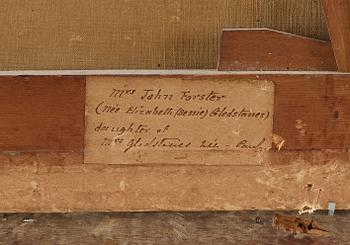 Mrs John Forster
(née Elizabeth (Bessie) Gledstanes)
daughter of
Mrs Gledstanes née -